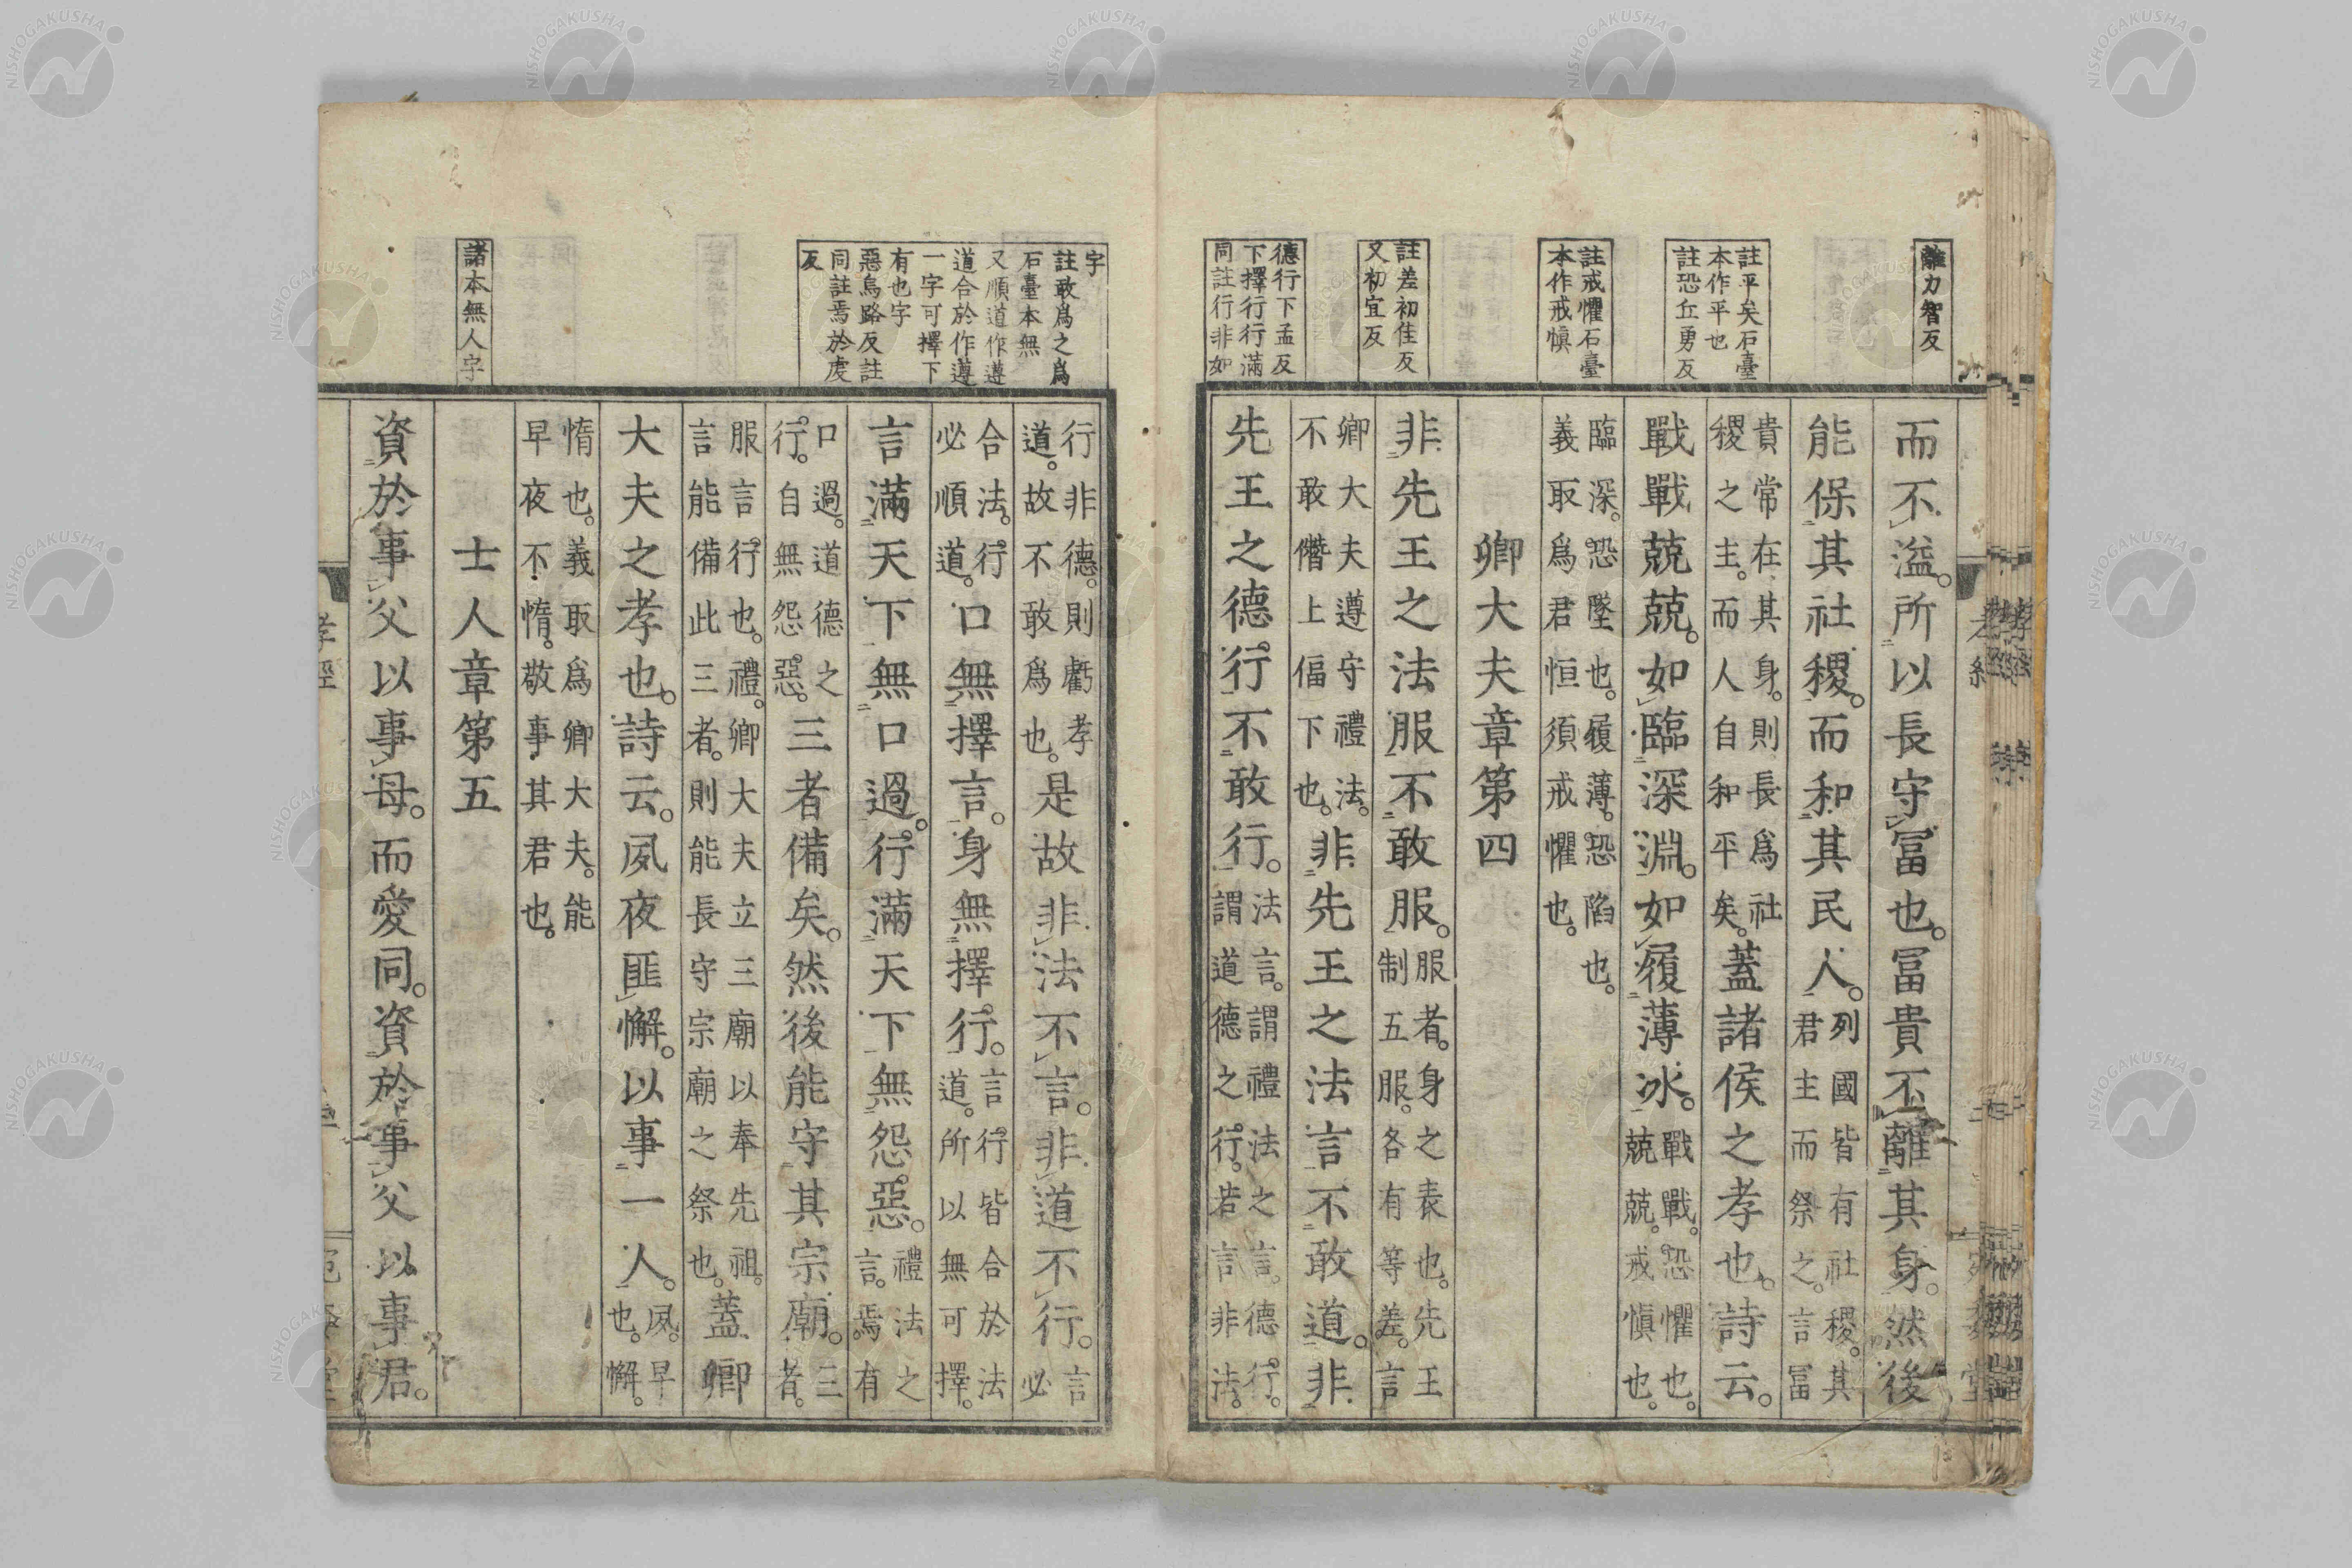 離力智反
註平矣石臺
本作平也
註恐丘勇反
註戒懼石臺
本作戒愼
註差初佳反
又初宜反
德行下孟反
下擇行行滿
同註行非如
而不溢。所以長守冨也。冨貴不離其身。然後
能保其社稷。而和其民人。列國皆有社稷。其君主而祭之。言冨
貴常在其身。則長爲社稷之主。而人自和平矣。蓋諸侯之孝也。詩云。
戰戰兢兢。如臨深淵。如履薄冰。戰戰。恐懼也。兢兢。戒愼也。
臨深。恐墜也。履薄。恐陷也。義取爲君恒須戒懼也。
卿大夫章第四
非先王之法服不敢服。服者。身之表也。先王制五服。各有等差。言
卿大夫遵守禮法。不敢僭上偪下也。非先王之法言不敢道。非
先王之德行不敢行。法言。謂禮法之言。德行。謂道德之行。若言非法。
字
註敢爲之爲
石臺本無
又順道作遵
道合於作遵
一字可擇下
有也字
惡烏路反註
同註焉於虔
反
諸本無人字
行非德。則虧孝道。故不敢爲也。是故非法不言。非道不行。言必
合法。行必順道。口無擇言。身無擇行。言行皆合於法道。所以無可擇。
言滿天下無口過。行滿天下無怨惡。禮法之言。焉有
口過。道德之行。自無怨惡。三者備矣。然後能守其宗廟。三者。
服言行也。禮。卿大夫立三廟以奉先祖。言能備此三者。則能長守宗廟之祭也。蓋卿
大夫之孝也。詩云。夙夜匪懈。以事一人。夙。早也。懈。
惰也。義取爲卿大夫。能早夜不惰。敬事其君也。
士人章第五
資於事父以事母。而愛同。資於事父以事君。
孝經